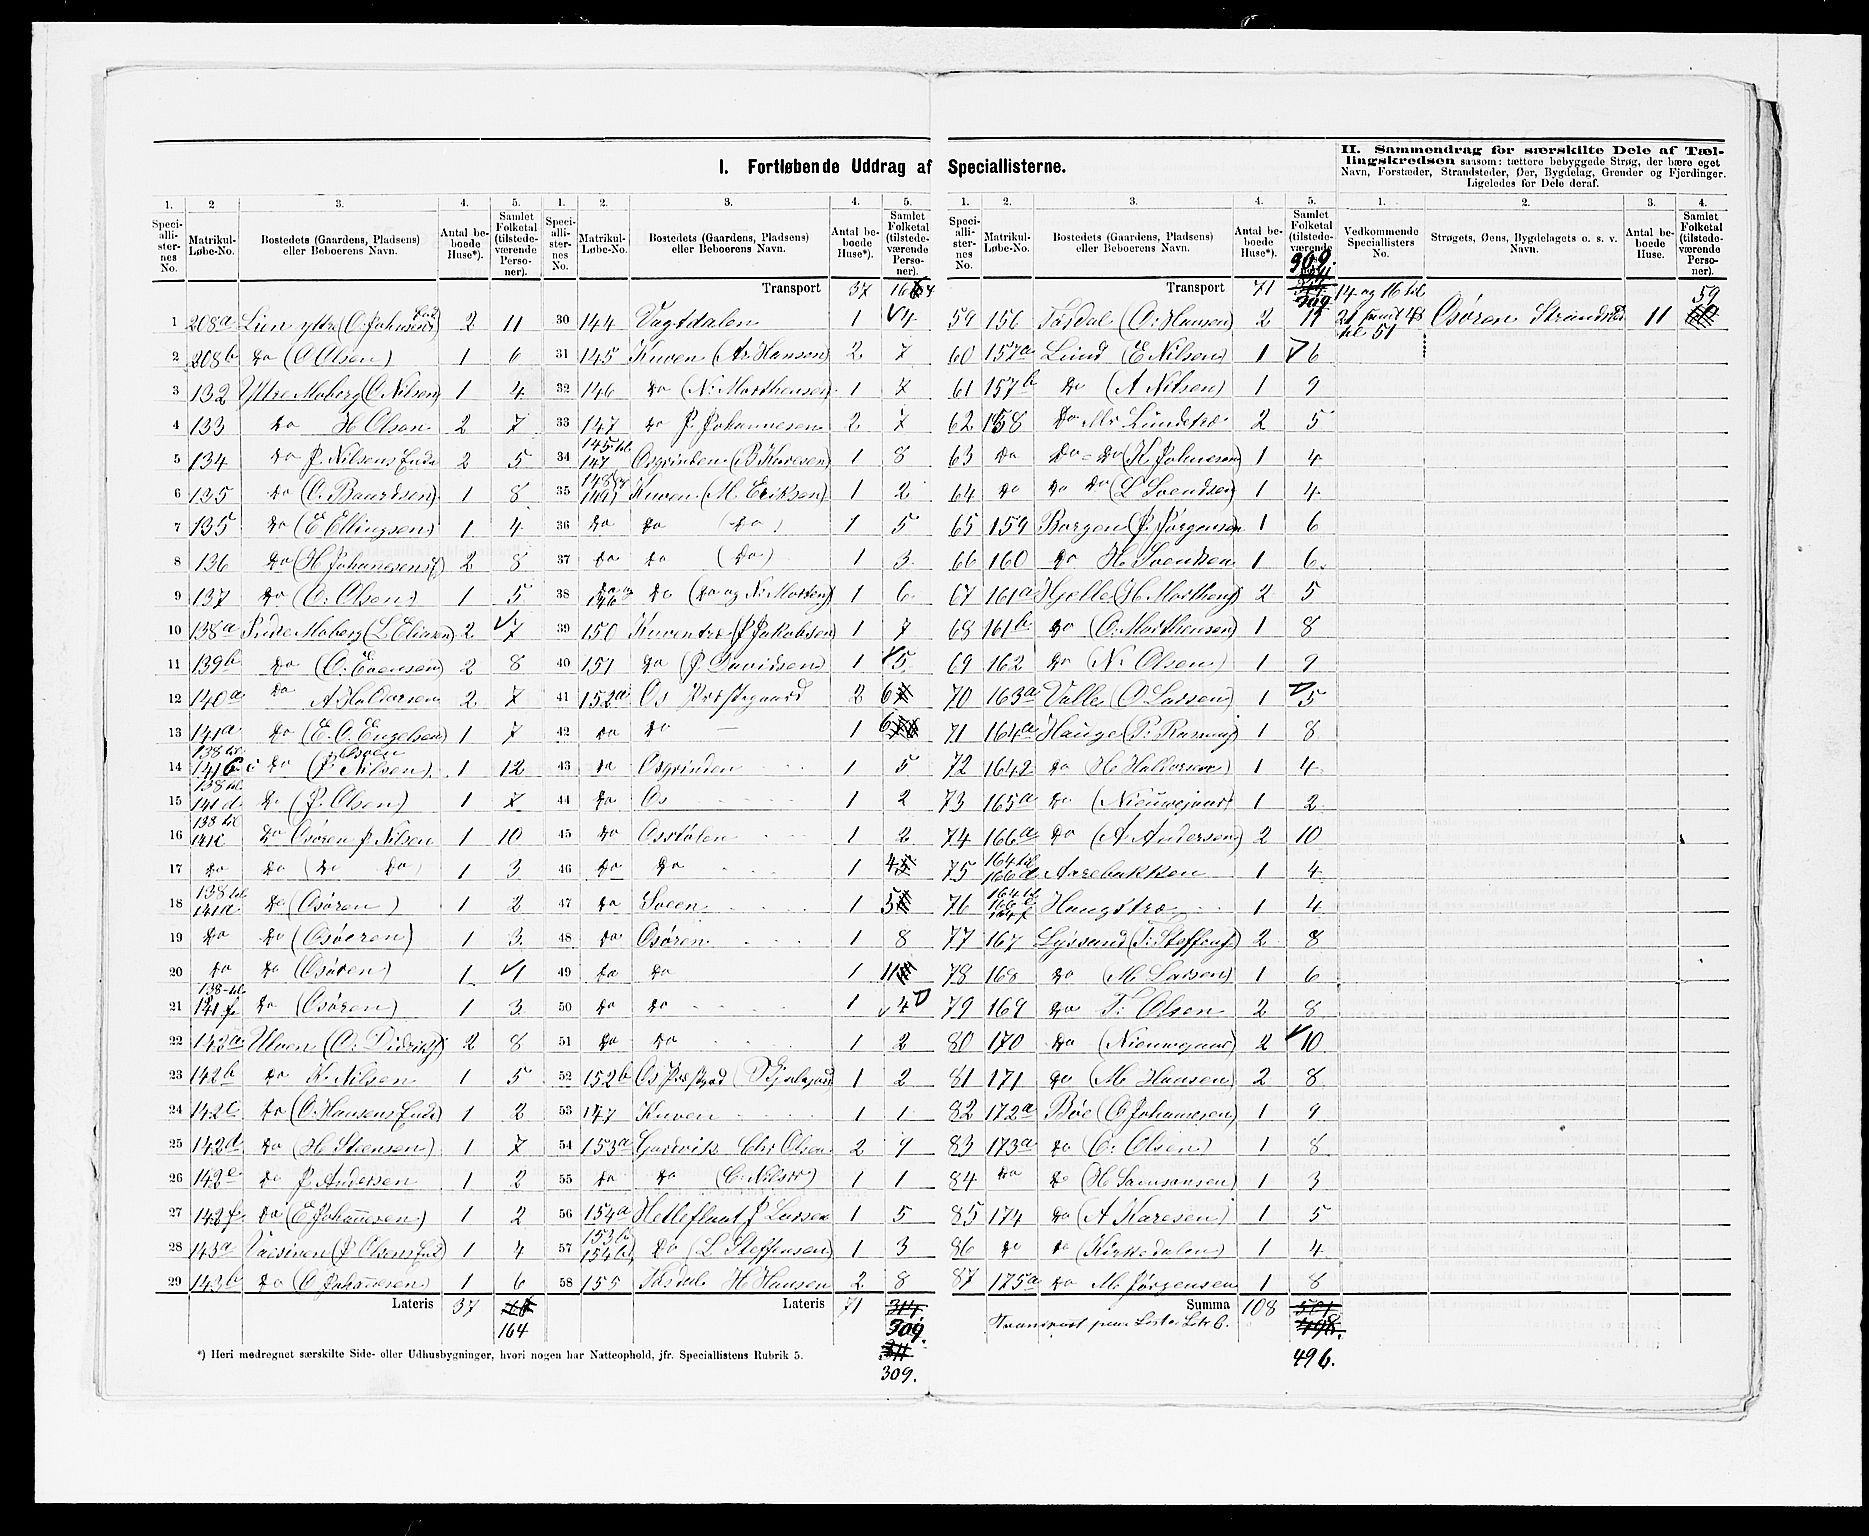 I. Fortløbende Uddrag af Speciallisterne.
II. Sammendrag for særskilte Dele af Tællingskredsen saasom: tættere bebyggede Strøg, der bære eget
Navn, Forstæder, Strandsteder, Øer, Bygdelag, Grender og Fjerdinger.
Ligeledes for Dele deraf.
1. 2 3. 4. 5.
Speciallisternes No. Matrikul-Løbe-No. Bostedets (Gaardens, Pladsens) eller Beboerens Navn. Antal beboede Huse*). Samlet Folketal (tilstedeværende Personer).
1 208a Lien ytre (O Johnsens 2 11
2 208b do (O Olsen) 1 6
3 132 Yttre Moberg (O Nilsen) 1 4
4 133 do H Olsen 2 7
5 134 do P. Nilsens Enke 2 5
6 135 do (O. Baardsen) 1 8
7 135 do (E Ellingsen) 1 4
8 136 do (H Johannesens) 2 8
9 137 do (O: Olsen) 1 5
10 138a Indre Moberg (L Eliasen) 2 7
11 139b do (O: Evensen) 2 8
12 140a do A Haldorsen 2 7
13 141a do (E. O. Engelsen) 1 7
14 138 til 141 do Osøen (P Nilsen) 1 12
15 138 til 141d do (P. Olsen) 1 7
16 138 til 141 do Osøren P Nilsen 1 10
17 do do (do do) 1 3
18 138 til 141a do (Osøren) 1 2
19 do do (Osøeren) 1 3
20 do do (Osøren) 1 1
21 138-til 141 f do (Osøren) 1 3
22 142a Ulven (O: Didriks) 2 8
23 142b do K. Nilsen 1 5
24 142c do (O. Hansens Enke) 1 2
25 142d do (H Steensen) 1 7
26 142e do P Andersen 1 2
27 142f do (E Johannesen) 1 2
28 143a (P Olsens Enk) 1 4
29 143b do (O Johannesen) 1 6
Lateris 37
164
1. 2. 3. 4. 5.
Speciallisternes No. Matrikul-Løbe-No. Bostedets (Gaardens, Pladsens) eller Beboerens Navn. Antal beboede Huse*). Samlet Folketal (tilstedeværende Personer).
Transport 37 164
30 144 Vagtdalen 1 4
31 145 Kuven (Ar Hansen) 2 7
32 146 do (N: Morthensen) 1 7
33 147 do P. Johannesen 2 7
34 145 til 147 Osgrinden (B Karesen) 1 8
35 148 og 149 Kuven (M. Eriksen) 1 2
36 do do (do) 1 5
37 do do (do) 1 3
38 do og 146 do (do og N: Morten) 1 6
39 150 Kuventræ (P Jakobsen) 1 7
40 151 do (P Davidsen) 1 5
41 152a Os Præstegaard 2 6
42 do do 1 6
43 do Osgrinden 1 5
44 do Os 1 2
45 do Osstølen 1 2
46 do do 1 4
47 do Sveen 1 5
48 do Osøren 1 8
49 do do 1 11
50 do do 1 4
51 do do 1 2
52 152b Os 1 2
53 147 Kuven 1 1
54 153a Gaasvik Chr Olsen 2 7
55 do do (C. Nilsen) 1 1
56 154a Hetleflaat P Larsen 1 5
57 153b 154b do (L Steffensen) 1 3
58 155 Tøsdal H Hansen 2 8
Lateris 71
309.
309.
1. 2. 3. 4. 5.
Speciallisternes No. Matrikul-Løbe-No. Bostedets (Gaardens, Pladsens) eller Beboerens Navn. Antal beboede Huse*). Samlet Folketal (tilstedeværende
309.
Transport 71 309
59 156 Tøsdal (O: Hansen) 2 11
60 157a Lund (E Nilsen) 1 6
61 157b do (A Nilsen) 1 9
62 158 do Lundetræ 2 5
63 do do do (H Johnesen) 1 4
64 do do do (L Svendsen) 1 4
65 159 Borgen (P. Jørgensen 1 6
66 160 do H Svendsen 1 6
67 161a Hjelle (H Mortheng) 2 5
68 161b do (O: Morthensen) 1 8
69 162 do (N: Olsen) 1 9
70 163a Valle (O Larsen) 1 5
71 164a Hauge (P: Rasmus) 1 8
72 1642 do (H Haldorsen) 1 4
73 165a do (Nieuwejaar) 1 2
74 166a do (A Andersen) 2 10
75 164 til 166d Aarebakken 1 4
76 164 til Haugstræ 1 4
77 167 Lyssand (T: Steffens) 2 8
78 168 do (M. Larsen) 1 6
79 169 do T: Olsen 2 8
80 170 do (Nieuwejaar) 2 10
81 171 do (M. Hansen) 2 8
82 172a Bøe (O Johannesen) 1 9
83 173a do (O: Olsen) 1 8
84 do do (H Samsonsen) 1 3
85 174 do (A Karesen) 1 5
86 do do (Kirkedalen) 1 4
87 175a do M. Jørgensen 1 8
Summa 108
Transport paa Liste Litr C.
496.
1. 2. 3. 4.
Vedkommende Speciallisters No. Strøgets, Øens, Bygdelagets o. s. v. Navn. Antal beboede Huse. Samlet Folketal (tilstedeværende Personer).
14 og 16 til
21 samt 48 Osøren Strandsted 11 59
til 51
*) Heri medregnet særskilte Side- eller Udhusbygninger, hvori nogen har Natteophold, jfr. Speciallistens Rubrik 5.